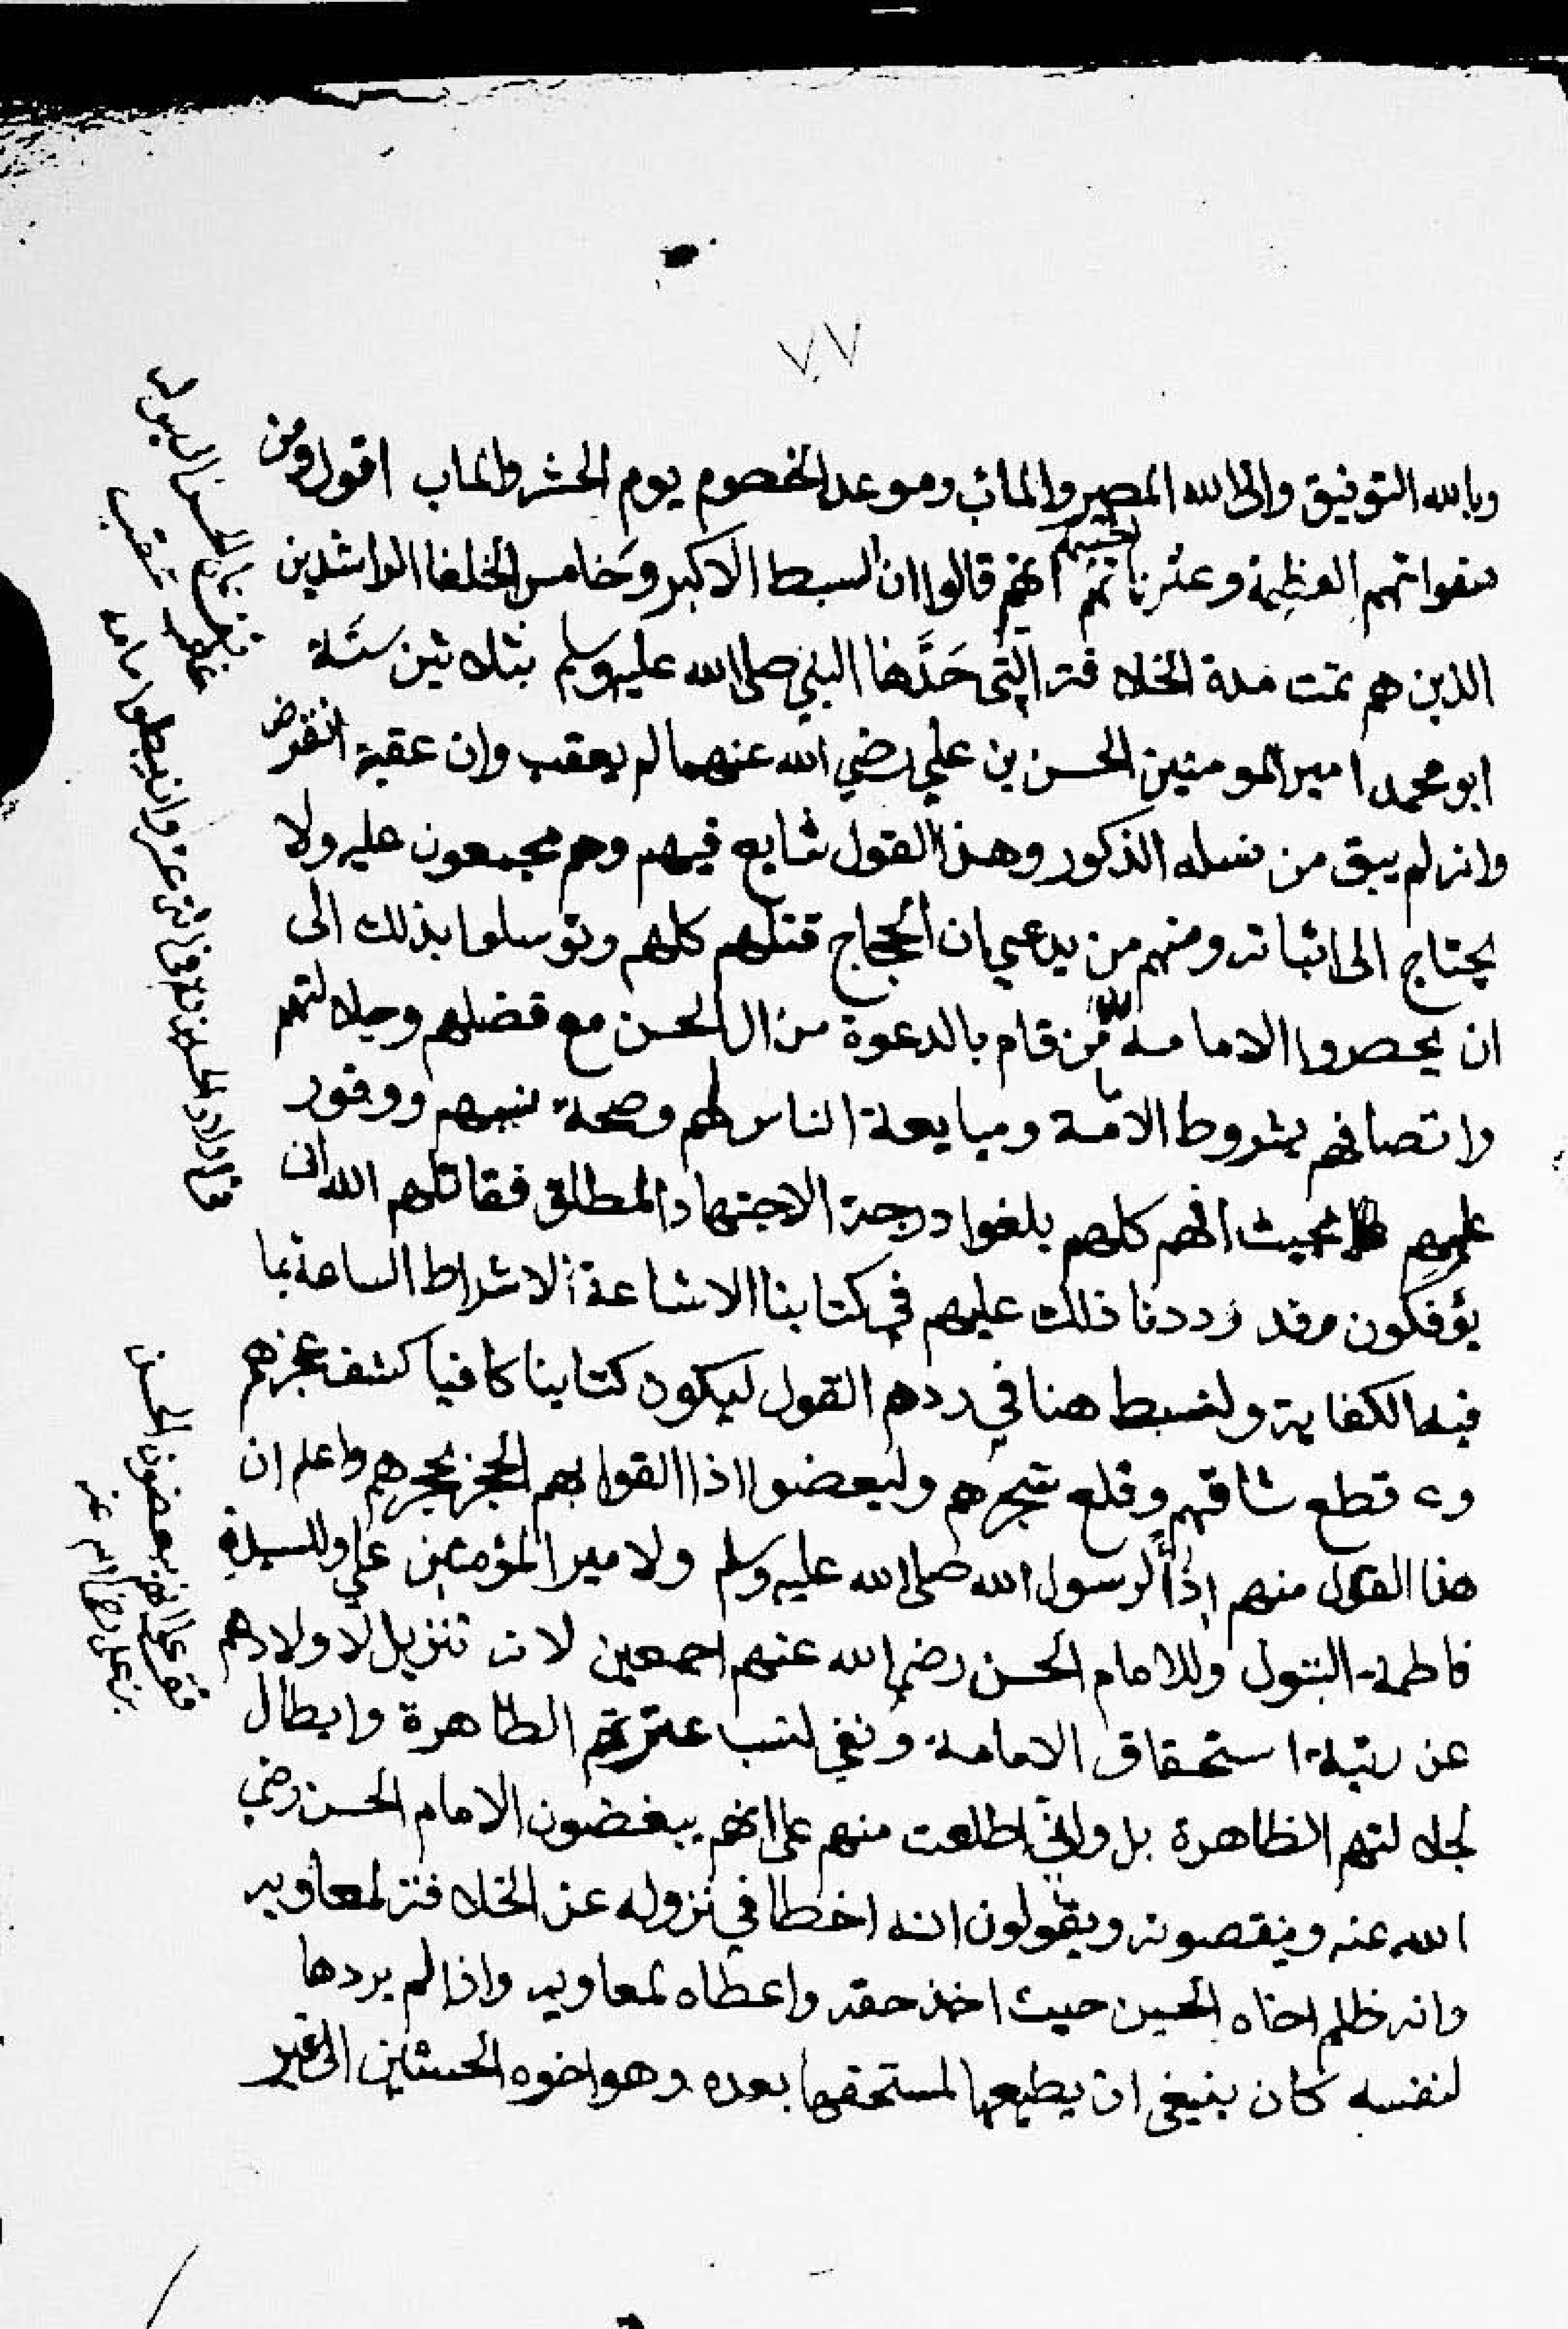 ٧٧
وبالله التوفيق والى الله المصير والمآب وموعد الخصوم يوم الحشر والماب اقول ومن
هفواتهم العظيمة وعثراتهم الجسيمة انهم قالوا ان السبط الاكبر وخامس الخلفا الراشدين
الذين هم تمت مدة الخلافة التي حَدَّها النبي صلى الله عليه وسلم بثلاثين سنة
ابو محمد امير المومنين الحسن بن علي رضي الله عنهما لم يعقب وان عقبه انقرض
وانه لم يبق من نسله الذكور وهذا القول شايع فيهم وهم مجمعون عليه ولا
يحتاج الى اثباته ومنهم من يدعي ان الحجاج قتلهم كلهم وتوسلوا بذلك الى
ان يحصروا الامامة من قام بالدعوة من ال الحسن مع فضلهم وجلالتهم
واتصافهم بشروط الامامة ومبايعة الناس لهم وصحة نسبهم ووفور
علمهم بحيث انهم كلهم بلغوا درجة الاجتهاد المطلق فقاتلهم الله انى
يؤفكون وقد رددنا ذلك عليهم في كتابنا الاشاعة لاشراط الساعة بما
فيه الكفاية ولنبسط هنا في ردهم القول ليكون كتابنا كافيا كشف عجزهم
وقطع شاقتهم وقلع شجرهم وليعضوا اذا القوا بهم الحجر بحجرهم واعلم ان
هذا القول منهم اذاً لرسول الله صلى الله عليه وسلم ولامير المؤمنين علي وللسيدة
فاطمة البتول وللامام الحسن رضي الله عنهم اجمعين لانه تنزيل لاولادهم
عن رتبة استحقاق الامامة ونفي لنسب عترتهم الطاهرة وابطال
لجلالتهم الظاهرة بل واني اطلعت منهم على انهم يبغضون الامام الحسن رضي
الله عنه وينقصونه ويقولون انه اخطا في نزوله عن الخلافة لمعاويه
وانه ظلم اخاه الحسين حيث اخذ حقه واعطاه لمعاويه واذا لم يردها
لنفسه كان ينبغي ان يطيعها لمستحقها بعده وهو اخوه الحسين الى غير
قف على انهم يبغضون الحسن
بن علي رضي الله عنه